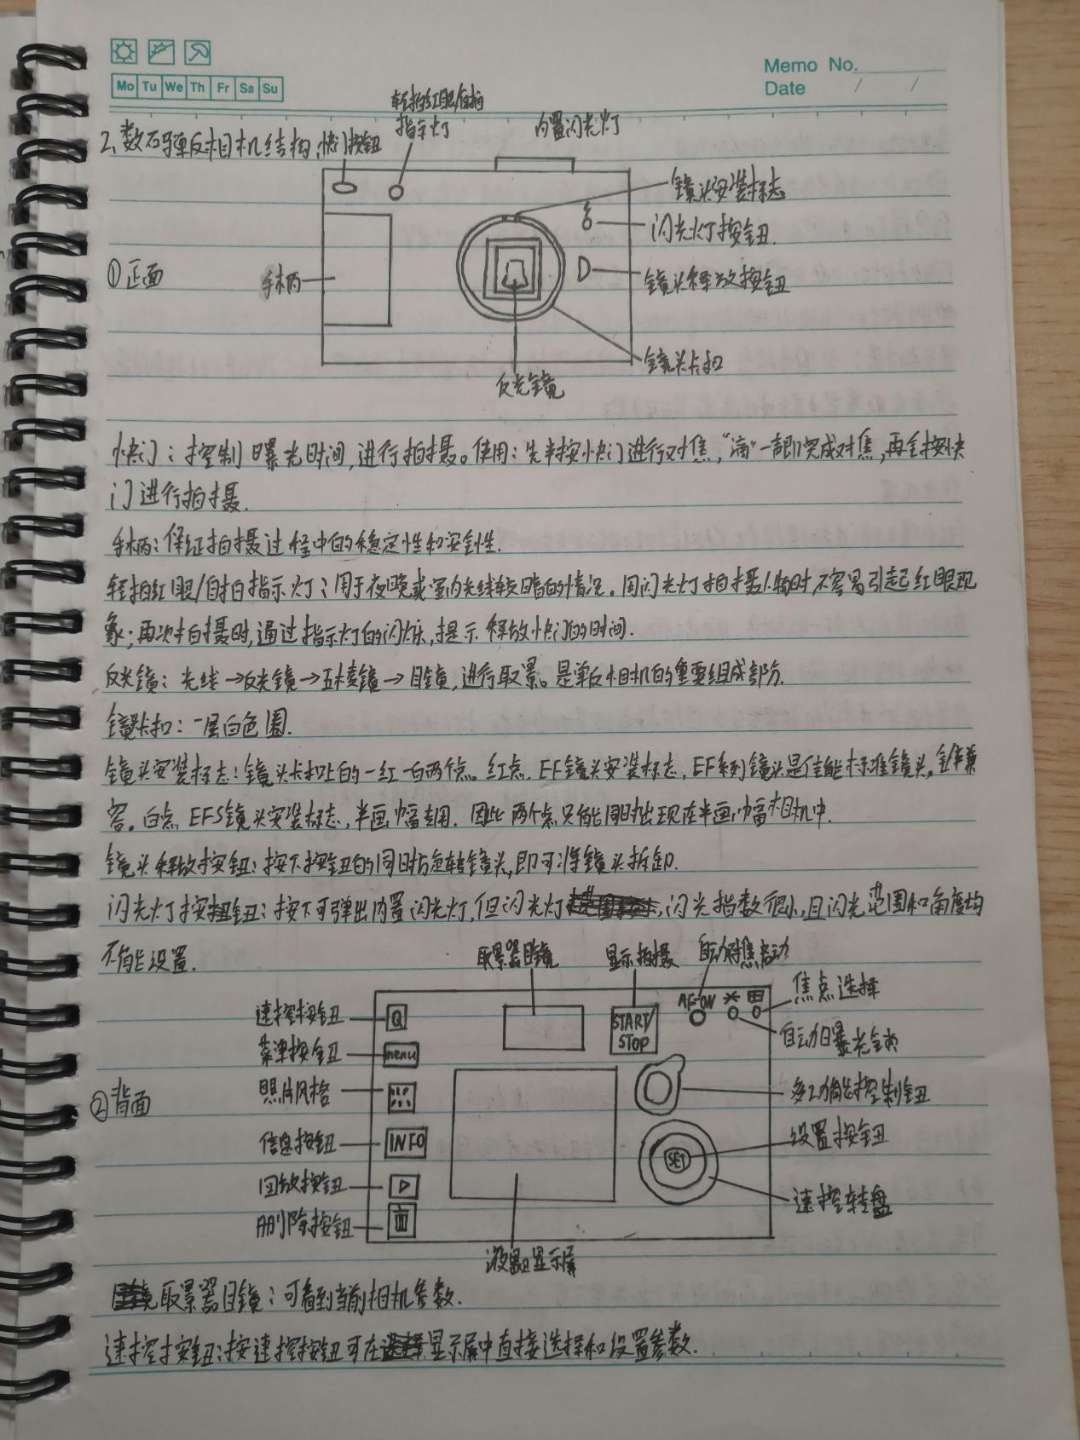 Memo No.
Mo Tu We Th Fr Sa Su
Date / /
轻拍红眼/自拍
指示灯
内置闪光灯
2、数码单反相机结构
快门按钮
镜头安装标志
闪光灯按钮
①正面
手柄
镜头释放按钮
镜头卡扣
反光镜
快门：控制曝光时间，进行拍摄。使用：先半按快门进行对焦，“滴”一声即完成对焦，再全按快
门进行拍摄.
手柄：保证拍摄过程中的稳定性和安全性.
轻拍红眼/自拍指示灯：用于夜晚或室内光线较暗的情况。用闪光灯拍摄人物时不容易引起红眼现
象；再次拍摄时，通过指示灯的闪烁，提示释放快门的时间.
反光镜：光线→反光镜→五棱镜→目镜，进行取景。是单反相机的重要组成部分.
镜头卡扣：一层白色圈.
镜头安装标志：镜头卡扣上的一红一白两个点。红点，EF镜头安装标志，EF系列镜头是佳能标准镜头，全体兼
容。白点 EFS镜头安装标志，半画幅专用. 因此两个点只能同时出现在半画幅相机中.
镜头释放按钮：按下按钮的同时旋转镜头，即可将镜头拆卸.
闪光灯按钮：按下可弹出内置闪光灯，但闪光灯，闪光指数很小，且闪光范围和角度均
不能设置.
取景器目镜
显示拍摄
自动对焦启动
焦点选择
速控按钮
Q
START/
STOP
AF-ON
自动曝光
菜单按钮
menu
②背面
照片风格
多功能控制钮
信息按钮
INFO
设置按钮
SET
回放按钮
速控转盘
删除按钮
液晶显示屏
取景器目镜：可看到当前相机参数.
速控按钮：按速控按钮可在显示屏中直接选择和设置参数.